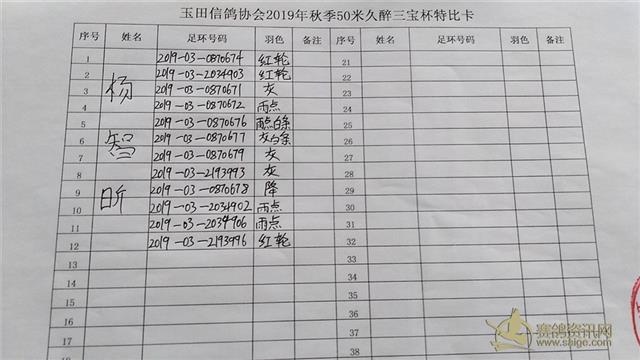 玉田信鸽协会2019年秋季50米久醉三宝杯特比卡
序号 姓名 足环号码 羽色 备注 序号 姓名 足环号码 羽色 备注
1 2019-03-0870674 红轮 21
2 2019-03-2034903 红轮 22
3 杨 2019-03-0870671 灰 23
4 2019-03-0870672 雨点 24
5 2019-03-0870676 雨点白条 25
6 智 2019-03-0870677 灰白条 26
7 2019-03-0870679 灰 27
8 2019-03-2193993 灰 28
9 昕 2019-03-0870678 降 29
10 2019-03-2034902 雨点 30
11 2019-03-2034906 雨点 31
12 2019-03-2193996 红轮 32
13 33
14 34
15 35
16 36
17 37
18 38
赛鸽资讯网
www.saige.com